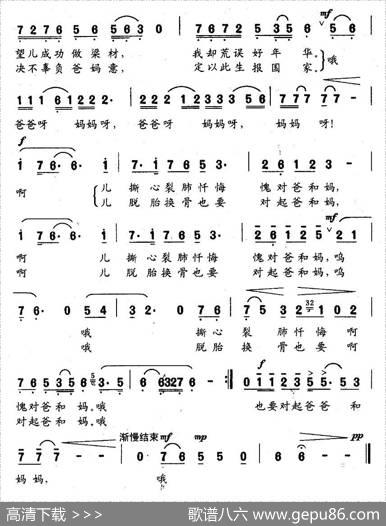 7 2 7 6 5 6 5 0 2 3 5 3 0 7 2 7 6 5 6 7 6 mf 5 6
望儿成功做梁材, 我却荒误好年华。哦
决不辜负爸妈意, 定以此生报国家。
1 1 1 6 1 2 2 2. 2 2 2 1 2 3 3 3 5 6 7 7 7 7 7 -
爸爸呀 妈妈呀, 爸爸呀 妈妈呀, 妈妈 呀!
f
1 7 6. 6. 7. 1 7 6 5 3. 2 6 1 2 3 -
啊 儿 撕心裂肺忏悔 愧对爸和妈,
儿 脱胎换骨也要 对起爸和妈,
mf
1 7 6. 6. 7. 1 7 6 5 3. 2 6 1 2 5 2 1
啊 儿 撕心裂肺忏悔 愧对爸和妈,呜
啊 儿 脱胎换骨也要 对起爸和妈,呜
7 6. 0 5 4 3 2. 0 7 6 7 5 3 2 1 0 2
哦 撕心 裂肺忏悔 啊
哦 脱胎 换骨也要 啊
7 6 5 3 5 6 3. 5 6 6 3 2 7 6 - 0 1 1 2 3 5 5. 5 3
愧对爸和妈。哦 也要对起爸爸 和
对起爸和妈。哦
渐慢结束 mf mp pp
7 7 7 - - 0 7 6 5 5 0 0 6 6 -
妈妈, 哦
高清下载 >>> 歌谱八六 www.gepu86.com